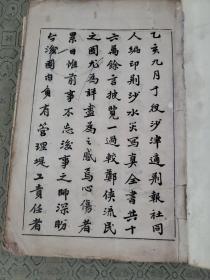 乙亥九月于役沙津適荆報社同
人編印荆沙水災寫真全書共十
六萬餘言披覽一過較鄭俠流民
之圖尤為詳盡為之感焉心傷者
累日惟前事不忘後事之師深盼
台滙國内負有管理堤工責任者